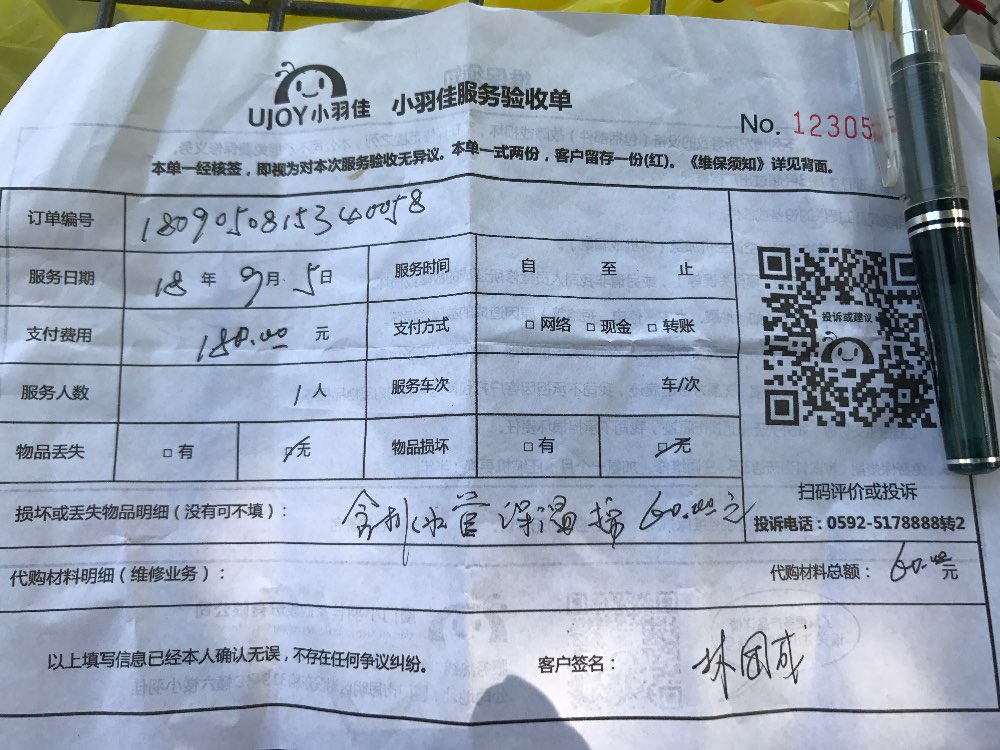 UJOY小羽佳 小羽佳服务验收单
No. 12305
本单一经核签，即视为对本次服务验收无异议。本单一式两份，客户留存一份(红)。《维保须知》详见背面。
订单编号 1809050815340058
服务日期 18 年 9 月 5 日 服务时间 自 至 止
支付费用 180.00 元 支付方式 □ 网络 □ 现金 □ 转账
服务人数 1 人 服务车次 车/次
物品丢失 □ 有 □ 无 物品损坏 □ 有 □ 无
投诉或建议
扫码评价或投诉
投诉电话：0592-5178888转2
损坏或丢失物品明细（没有可不填）： 水管保温棉 60.00元
代购材料明细（维修业务）： 代购材料总额： 60.00 元
以上填写信息已经本人确认无误，不存在任何争议纠纷。 客户签名： 林国成